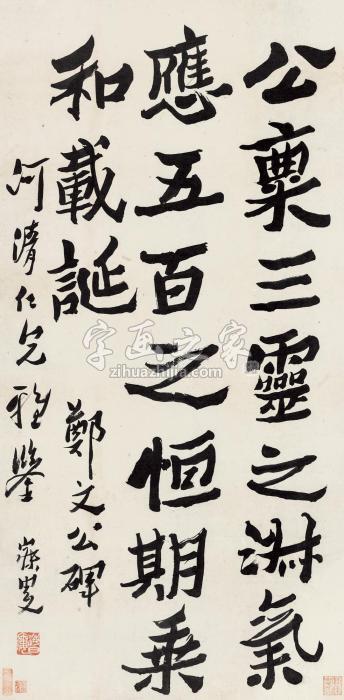 公稟三靈之淑氣
應五百之恒期乘
和載誕
鄭文公碑
河清仁兄雅鑒 寐叟
字画之家
www.zihuazhijia.com